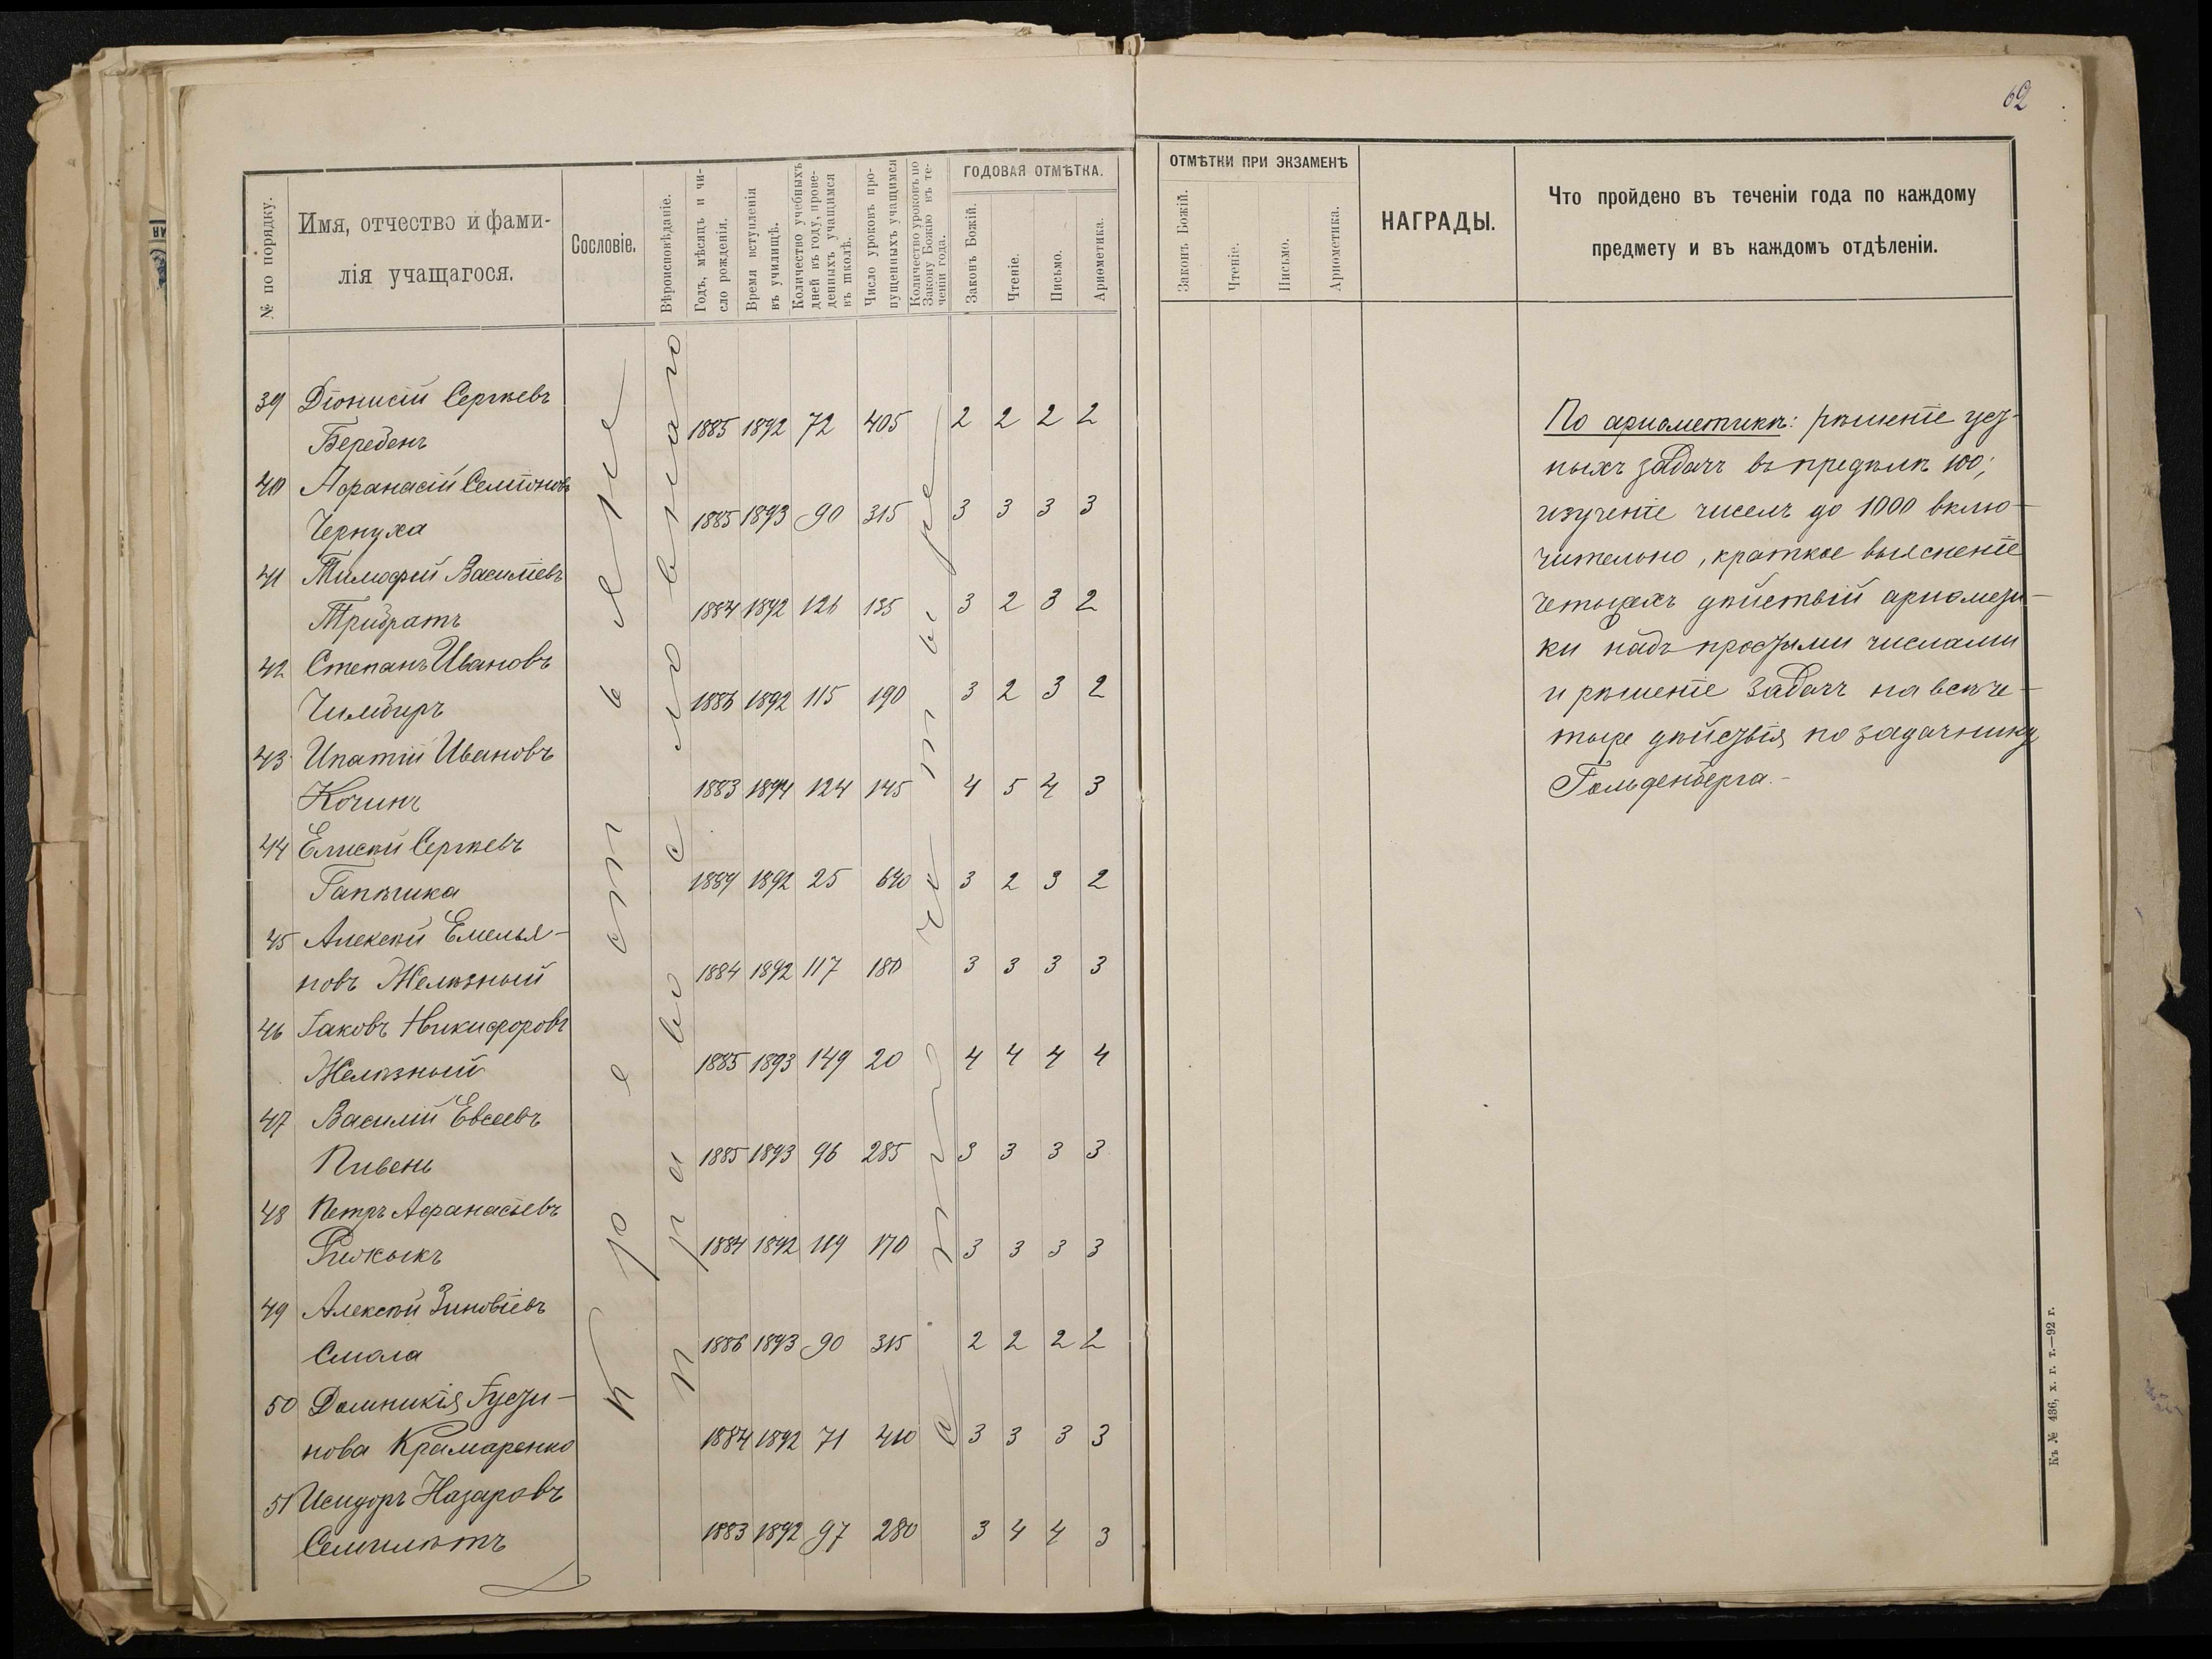 62
№ по порядку.
Имя, отчество и фами-
лія учащагося.
Сословіе.
Вѣроисповѣданіе.
Годъ, мѣсяцъ и чи-
сло рожденія.
Время вступленія
въ училищѣ.
Количество учебныхъ
дней въ году, прове-
денныхъ учащимся
въ школѣ.
Число уроковъ про-
пущенныхъ учащимся
Количество уроковъ по
Закону Божію въ те-
ченіи года.
ГОДОВАЯ ОТМѢТКА.
Законъ Божій.
Чтеніе.
Письмо.
Ариѳметика.
крестьяне
православнаго
39 Діонисій Сергѣевъ
Беребенъ
1885 1892 72 405 2 2 2 2
40 Аѳанасій Семіоновъ
Чернуха
1885 1893 90 315 3 3 3 3
41 Тимоѳей Василіевъ
Трибратъ
1884 1892 126 135 3 2 3 2
42 Степанъ Ивановъ
Чимбиръ
1886 1892 115 190 3 2 3 2
43 Ипатій Ивановъ
Кочинъ
1883 1894 124 145 4 5 4 3
44 Елисѣй Сергѣевъ
Гапѣчика
1884 1892 25 640 3 2 3 2
45 Алексѣй Емелья-
новъ Желѣзный
1884 1892 117 180 3 3 3 3
46 Іаковъ Никифоровъ
Желѣзный
1885 1893 149 20 4 4 4 4
47 Василій Евсеевъ
Пивень
1885 1893 96 285 3 3 3 3
48 Петръ Аѳанасьевъ
Рижыкъ
1884 1892 119 170 3 3 3 3
49 Алексѣй Зиновіевъ
Смола
1886 1893 90 315 2 2 2 2
50 Домникія Густи-
нова Крамаренко
1884 1892 71 410 3 3 3 3
51 Исидоръ Назаровъ
Семилѣтъ
1883 1892 97 280 3 4 4 3
ОТМѢТКИ ПРИ ЭКЗАМЕНѢ
Законъ Божій.
Чтеніе.
Письмо.
Ариѳметика.
НАГРАДЫ.
Что пройдено въ теченіи года по каждому
предмету и въ каждомъ отдѣленіи.
По ариѳметикѣ: рѣшеніе уст-
ныхъ задачъ въ предѣлѣ 100;
изученіе чиселъ до 1000 вклю-
чительно, краткое выясненіе
четырехъ дѣйствій ариѳмети-
ки надъ простыми числами
и рѣшеніе задачъ на всѣ че-
тыре дѣйствія по задачнику
Гольденберга.-
Къ № 436, х. г. т.—92 г.